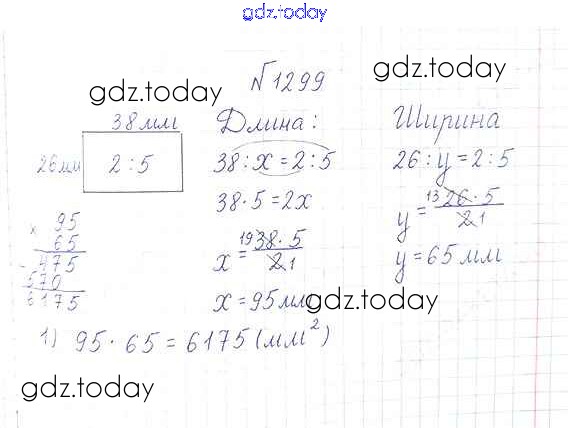 gdz.today
№1299
gdz.today
gdz.today
38 мм
26 мм
2 : 5
Длина:
38 : x = 2 : 5
38 · 5 = 2x
x = 19 38 · 5 / 2 1
x = 95 мм
Ширина
26 : y = 2 : 5
y = 13 26 · 5 / 2 1
y = 65 мм
gdz.today
× 95
65
475
570
6175
1) 95 · 65 = 6175 (мм²)
gdz.today